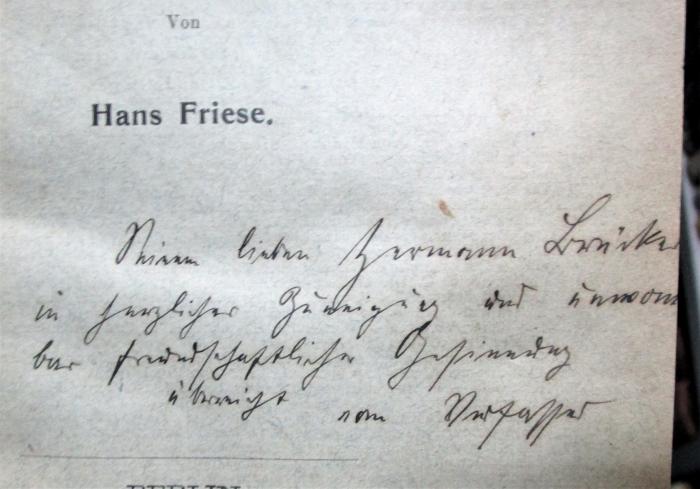 Von
Hans Friese.
Seinem lieben Hermann Brücke
in herzlicher Zuneigung und unwan
bar freundschaftlicher Gesinnung
überreicht vom Verfasser
BERLIN